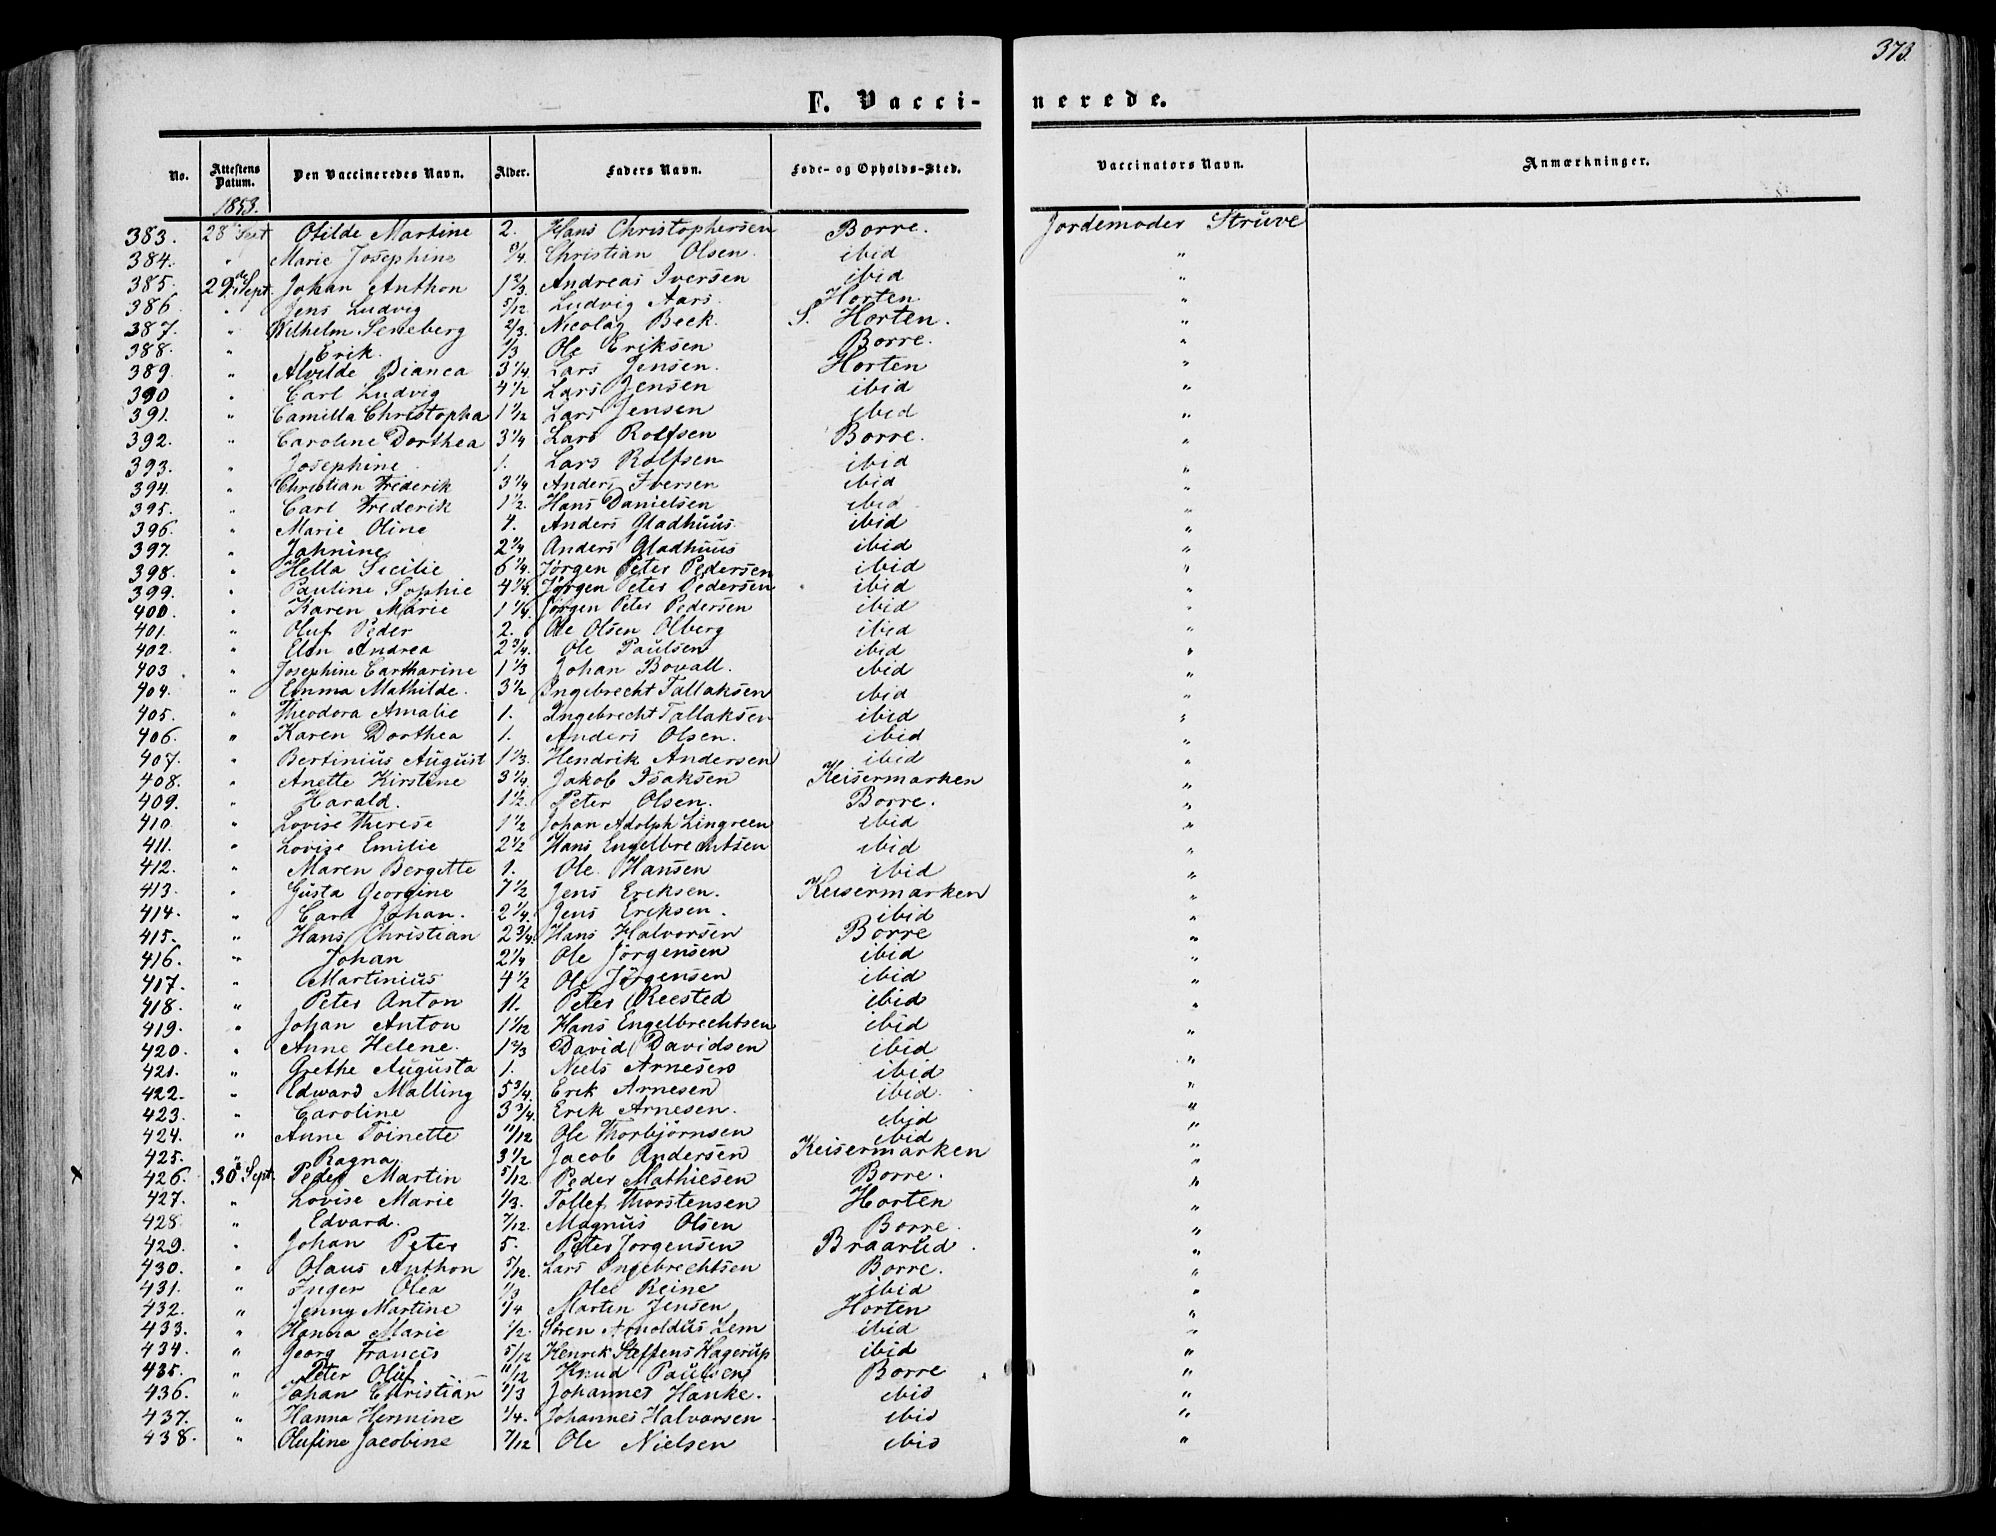 373.
F. Vacci- nerede.
No. Attestens Datum. Den Vaccineredes Navn. Alder. Faders Navn. Føde- og Opholds-Sted. Vaccinators Navn. Anmærkninger.
1853.
383. 28 Sept Otilde Martine 2. Hans Christophersen Borre. Jordemoder Struve
384. " Marie Josephine 9/4. Christian Olsen ibid "
385. 29 de Sept. Johan Anthon 1 2/3. Andreas Iversen ibid "
386. " Jens Ludvig 5/12 Ludvig Aars. Horten "
387. " Wilhelm Seneberg 2/3. Nicolay Beck. S. Horten. "
388. " Erik. 1/3 Ole Eriksen Borre. "
389. " Alvilde Bianca 3 1/4. Lars Jensen. Horten "
390 " Carl Ludvig 4 1/2 Lars Jensen ibid "
391. " Camilla Christopha 1 1/12 Lars Jensen ibid "
392. " Caroline Dorthea 3 1/4 Lars Rolfsen Borre. "
393. " Josephine 1. Lars Rolfsen ibid "
394. " Christian Frederik 3 1/4 Anders Iversen ibid "
395. " Carl Frederik 1 1/2. Hans Danielsen ibid "
396. " Marie Oline 4. Anders Gladhuus ibid "
397. " Johnine 2 1/4 Anders Gladhuus ibid "
398. " Hella Sicilie 6 1/4. Jørgen Peter Pedersen ibid "
399. " Pauline Sophie 4 1/4. Jørgen Peter Pedersen ibid "
400. " Karen Marie 1 1/4. Jørgen Peter Pedersen ibid "
401. " Oluf Peder 2. Ole Olsen Olberg ibid "
402. " Elen Andrea 2 3/4. Ole Paulsen ibid "
403. " Josephine Cartharine 1 1/3 Johan Bovall. ibid "
404. " Emma Mathilde. 3 1/2 Ingebrecht Tallaksen ibid "
405. " Theodora Amalie 1. Ingebrecht Tallaksen ibid "
406. " Karen Dorthea 1. Anders Olsen. ibid "
407. " Bertinius August 1 1/3. Hendrik Andersen ibid "
408. " Anette Kirstine 3 1/4. Jakob Isaksen Keisermarken "
409. " Harald. 1 1/2. Peter Olsen. Borre. "
410. " Lovise Therese 1 1/2 Johan Adolph Lingreen ibid "
411. " Lovise Emilie 2 1/2 Hans Engelbrechtsen ibid "
412. " Maren Bergitte 1. Ole Hansen ibid "
413. " Gusta Georgine 7 1/2 Jens Eriksen. Keisermarken "
414. " Carl Johan. 2 1/4. Jens Eriksen. ibid "
415. " Hans Christian 2 3/4. Hans Halvorsen Borre "
416. " Johan 2 1/4 Ole Jörgensen ibid "
417. " Martinius 4 1/2 Ole Jörgensen ibid "
418. " Peter Anton 11. Peter Reested ibid "
419. " Johan Anton 1 1/12 Hans Engelbrechtsen ibid "
420. " Anne Helene. 1 2/3 David Davidsen ibid "
421. " Grethe Augusta 1. Niels Arnesen ibid "
422. " Edward Malling 5 3/4. Erik Arnesen ibid. "
423. " Caroline 3 3/4. Erik Arnesen. ibid "
424. " Anne Töinette 11/12 Ole Thorbjørnsen ibid "
425. " Ragna 3 1/2 Jacob Andersen Keisermarken "
426. 30 Sept. Peder Martin 5/12 Peder Mathiesen Borre. "
427. " Lovise Marie 1/3. Tollef Thorstensen Horten "
428. " Edvard. 7/12. Magnus Olsen Borre. "
429. " Johan Peter 5. Peter Jorgensen Braarud. "
430. " Olaus Anthon 5/12. Lars Ingebrechtsen Borre. "
431. " Inger Olea 1/3 Ole Reine ibid "
432. " Jenny Martine 1/4 Marten Jensen Horten "
433. " Hanna Marie 1/2. Sören Arnoldus Lem ibid "
434. " Georg Francis 5/12 Henrik Steffens Hagerup ibid "
435. " Peter Oluf 11/12 Knud Paulsen Borre "
436. " Johan Christian 1/3 Johannes Hanke. ibid "
437. " Hanna Hermine 1/4. Johannes Halvorsen ibid "
438. " Olufine Jacobine 7/12 Ole Nielsen ibid "